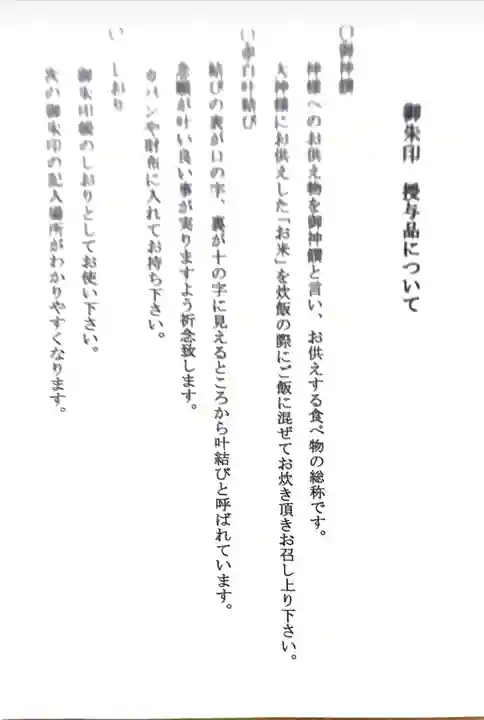 御朱印 授与品について
〇御神饌
神様へのお供え物を御神饌と言い、お供えする食べ物の総称です。
大神様にお供えした「お米」を炊飯の際にご飯に混ぜてお炊き頂きお召し上り下さい。
〇赤白叶結び
結びの表が口の字、裏が十の字に見えるところから叶結びと呼ばれています。
念願が叶い良い事が実りますよう祈念致します。
カバンや財布に入れてお持ち下さい。
しおり
御朱印帳のしおりとしてお使い下さい。
次の御朱印の記入場所がわかりやすくなります。